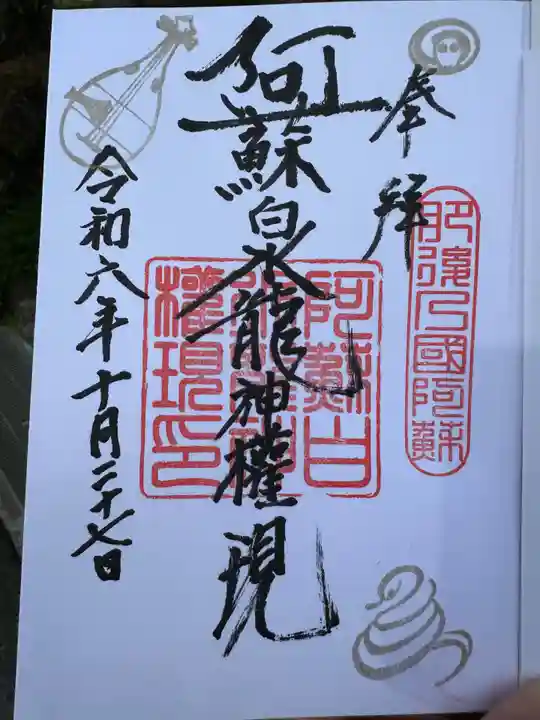 奉拝
肥後乃國阿蘇
阿蘇白水龍神權現
阿蘇白
水龍神
權現印
令和六年十月二十七日